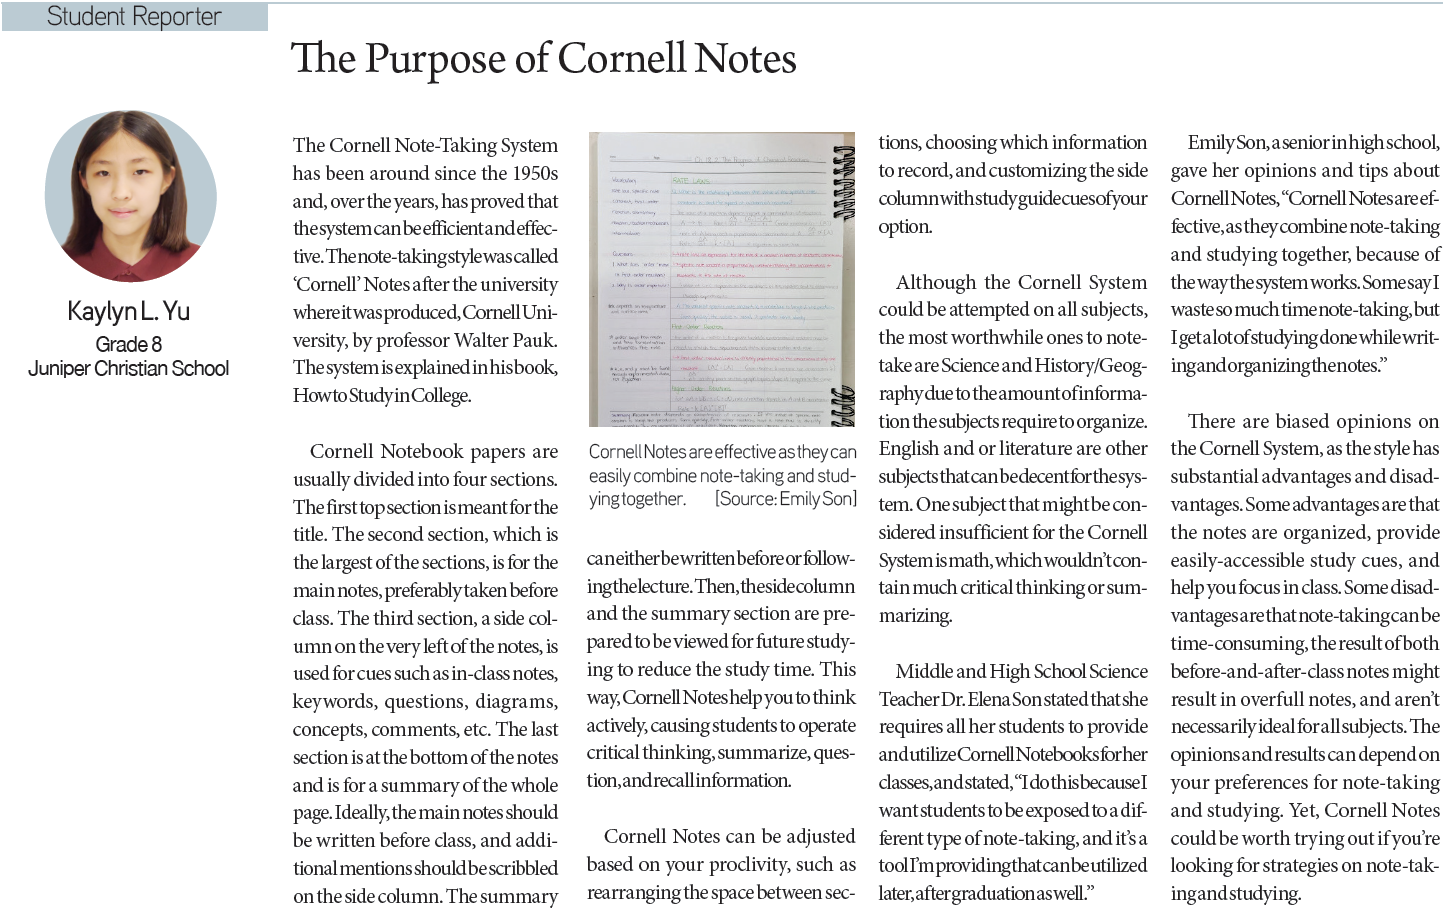 Student Reporter
The Purpose of Cornell Notes
Kaylyn L. Yu
Grade 8
Juniper Christian School
The Cornell Note-Taking System
has been around since the 1950s
and, over the years, has proved that
the system can be efficient and effec-
tive. The note-taking style was called
‘Cornell’ Notes after the university
where it was produced, Cornell Uni-
versity, by professor Walter Pauk.
The system is explained in his book,
How to Study in College.
Cornell Notebook papers are
usually divided into four sections.
The first top section is meant for the
title. The second section, which is
the largest of the sections, is for the
main notes, preferably taken before
class. The third section, a side col-
umn on the very left of the notes, is
used for cues such as in-class notes,
keywords, questions, diagrams,
concepts, comments, etc. The last
section is at the bottom of the notes
and is for a summary of the whole
page. Ideally, the main notes should
be written before class, and addi-
tional mentions should be scribbled
on the side column. The summary
RATE LAWS
Cornell Notes are effective as they can
easily combine note-taking and stud-
ying together. [Source: Emily Son]
can either be written before or follow-
ing the lecture. Then, the side column
and the summary section are pre-
pared to be viewed for future study-
ing to reduce the study time. This
way, Cornell Notes help you to think
actively, causing students to operate
critical thinking, summarize, ques-
tion, and recall information.
Cornell Notes can be adjusted
based on your proclivity, such as
rearranging the space between sec-
tions, choosing which information
to record, and customizing the side
column with study guide cues of your
option.
Although the Cornell System
could be attempted on all subjects,
the most worthwhile ones to note-
take are Science and History/Geog-
raphy due to the amount of informa-
tion the subjects require to organize.
English and or literature are other
subjects that can be decent for the sys-
tem. One subject that might be con-
sidered insufficient for the Cornell
System is math, which wouldn’t con-
tain much critical thinking or sum-
marizing.
Middle and High School Science
Teacher Dr. Elena Son stated that she
requires all her students to provide
and utilize Cornell Notebooks for her
classes, and stated, “I do this because I
want students to be exposed to a dif-
ferent type of note-taking, and it’s a
tool I’m providing that can be utilized
later, after graduation as well.”
Emily Son, a senior in high school,
gave her opinions and tips about
Cornell Notes, “Cornell Notes are ef-
fective, as they combine note-taking
and studying together, because of
the way the system works. Some say I
waste so much time note-taking, but
I get a lot of studying done while writ-
ing and organizing the notes.”
There are biased opinions on
the Cornell System, as the style has
substantial advantages and disad-
vantages. Some advantages are that
the notes are organized, provide
easily-accessible study cues, and
help you focus in class. Some disad-
vantages are that note-taking can be
time-consuming, the result of both
before-and-after-class notes might
result in overfull notes, and aren’t
necessarily ideal for all subjects. The
opinions and results can depend on
your preferences for note-taking
and studying. Yet, Cornell Notes
could be worth trying out if you’re
looking for strategies on note-tak-
ing and studying.